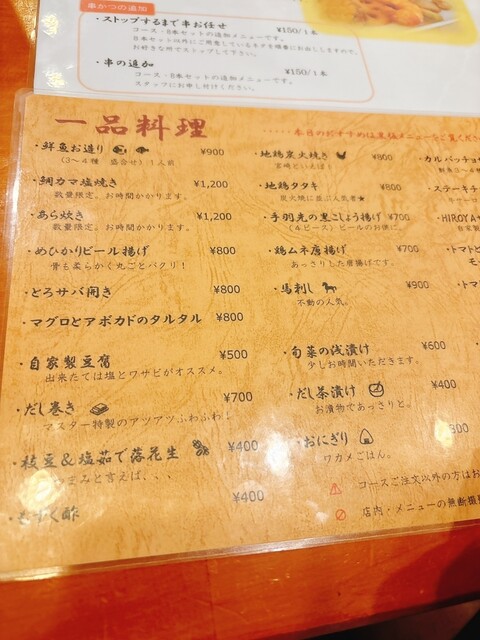 串かつの追加
・ストップするまで串お任せ ¥150/1本
コース・8本セットの追加メニューです。
お好きな所でストップして下さい。
・串の追加 ¥150/1本
コース・8本セットの追加メニューです。
スタッフにお申し付けください。
一品料理
・鮮魚お造り ¥900
(3～4種 盛合せ) 1人前
・鯛カマ塩焼き ¥1,200
数量限定。お時間かかります。
・あら炊き ¥1,200
数量限定。お時間かかります。
・めひかりビール揚げ ¥800
骨も柔らかく丸ごとパクリ!
・とろサバ開き ¥800
・マグロとアボカドのタルタル ¥800
・自家製豆腐 ¥500
出来たては塩とワサビがオススメ。
・だし巻き ¥700
マスター特製のアツアツふわふわ!
・枝豆&塩茹で落花生 ¥400
つまみと言えば、、、
・もずく酢 ¥400
・地鶏炭火焼き ¥800
宮崎といえば!
・地鶏タタキ ¥800
炭火焼に並ぶ人気者★
・手羽先の黒こしょう揚げ ¥700
(4ピース) ビールのお供に。
・鶏ムネ唐揚げ ¥700
あっさりした唐揚げです。
・馬刺し ¥900
不動の人気。
・旬菜の浅漬け ¥600
少しお時間いただきます。
・だし茶漬け ¥400
お漬物であっさりと。
・おにぎり 300
ワカメごはん。
カルパッチョ
・ステーキ
・HIROYA
・トマト
・トマ
コースご注文以外の方はお
店内・メニューの無断撮